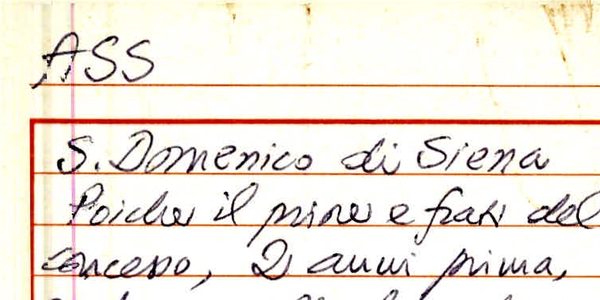 ASS
S. Domenico di Siena
Poiché il priore e frati del
concesso, 2 anni prima,